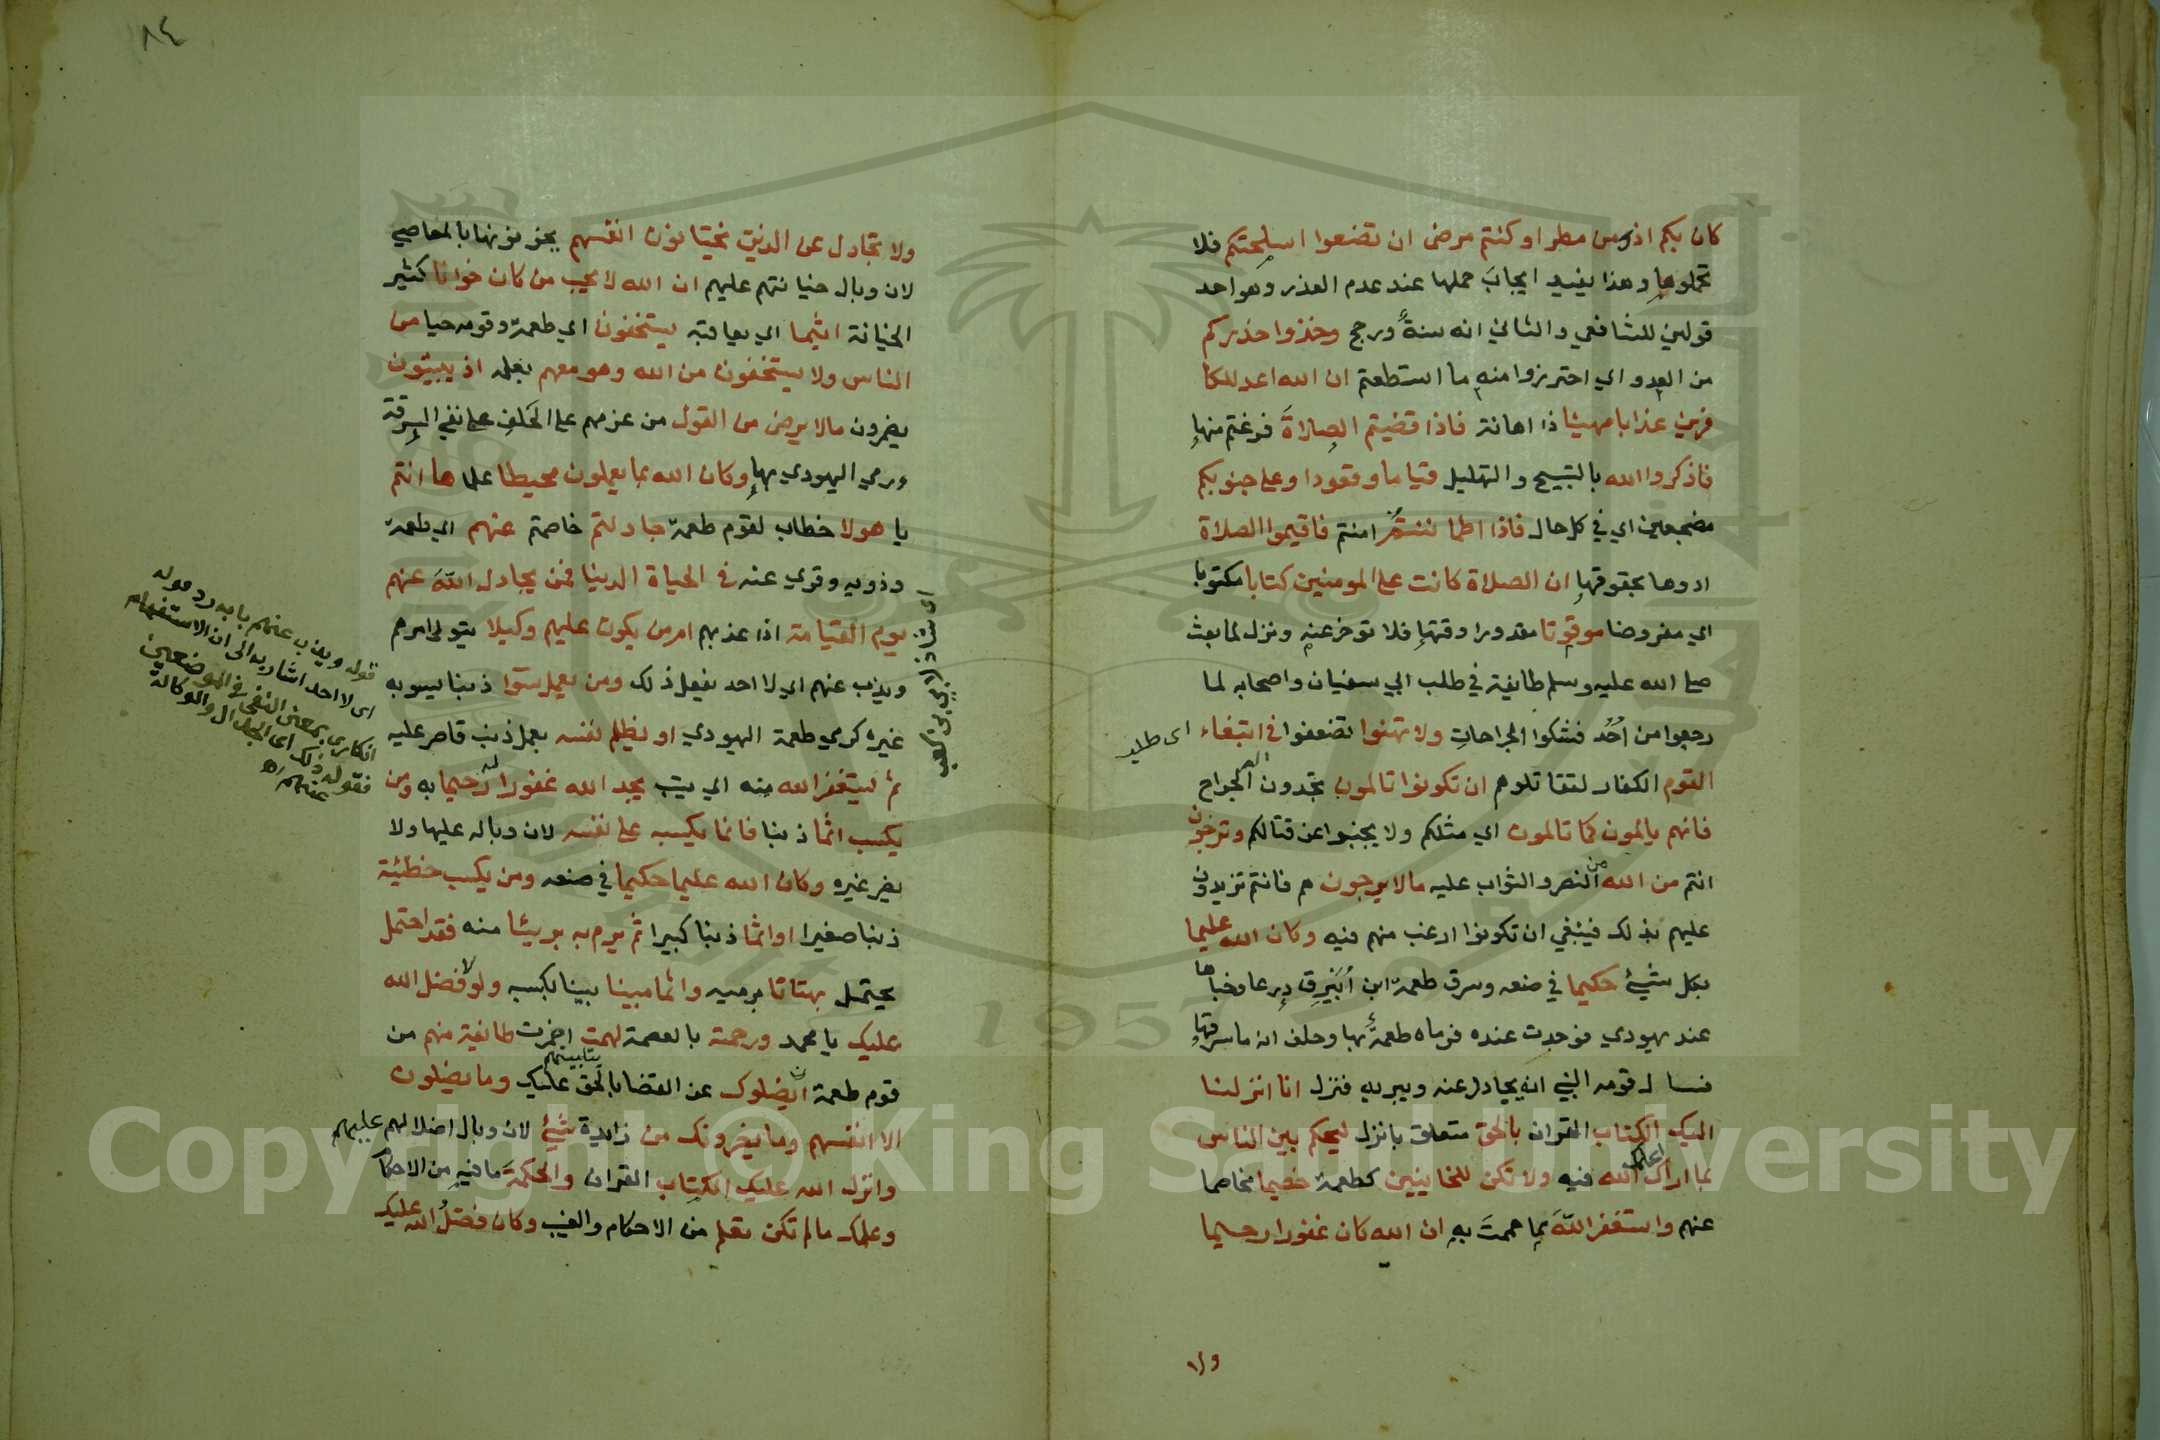 كان بكم اذى من مطر او كنتم مرضى ان تضعوا اسلحتكم فلا
تحملوها وهذا يفيد ايجاب حملها عند عدم العذر وهو احد
قولين للشافعي والثاني انه سنة ورجح وخذوا حذركم
من العدو اي احترزوا منه ما استطعتم ان الله اعد للكا
فرين عذابا مهينا ذا اهانة فاذا قضيتم الصلاة فرغتم منها
فاذكروا الله بالتسبيح والتهليل قياما وقعودا وعلى جنوبكم
مضجعين اي في كل حال فاذا اطماننتم امنتم فاقيموا الصلاة
ادوها بحقوقها ان الصلاة كانت على المومنين كتابا مكتوبا
اي مفروضا موقوتا مقدورا وقتها فلا توخر عنه ونزل لما بعث
صلى الله عليه وسلم طايفة في طلب ابي سفيان واصحابه لما
رجعوا من احد فشكوا الجراحات ولا تهنوا تضعفوا في ابتغاء
اى طلب
القوم الكفار لتقاتلوهم ان تكونوا تالمون تجدون الم الجراح
فانهم يالمون كما تالمون اي مثلكم ولا يجبنوا عن قتالكم وترجون
انتم من الله من النصر والثواب عليه ما لا يرجون هم فانتم تزيدون
عليهم بذلك فينبغي ان تكونوا ارغب منهم فيه وكان الله عليما
بكل شيئ حكيما في صنعه وسرق طعمة ابن ابيرق درعا وخباها
عند يهودي فوجدت عنده فرماه طعمة بها وحلف انه ما سرقها
فسال قومه النبي انه يجادل عنه ويبريه فنزل انا انزلنا
اليك الكتاب القران بالحق متعلق بانزل ليحكم بين الناس
بما اراك اعلمك الله فيه ولا تكن للخاينين كطعمة خصيما مخاصما
عنهم واستغفر الله مما هممت به ان الله كان غفورا رحيما
ولا
٨٤
ولا تجادل عن الذين يختانون انفسهم يخونونها بالمعاصي
لان وبال خيانتهم عليهم ان الله لا يحب من كان خوانا كثير
الخيانة اثيما اي يعاقبه يستخفون اي طعمة وقومه حيا من
الناس ولا يستخفون من الله وهو معهم بعلمه اذ يبيتون
يضمرون ما لا يرضى من القول من عزمهم على الحلف على نفي السرقة
ورمي اليهودي بها وكان الله بما يعملون محيطا علما ها انتم
يا هولا خطاب لقوم طعمة جادلتم خاصمتم عنهم اي طعمة
وذويه وقري عنه في الحياة الدنيا فمن يجادل الله عنهم
يوم القيامة اذا عذبهم امن يكون عليهم وكيلا يتولى امرهم
ويذب عنهم اي لا احد يفعل ذلك ومن يعمل سوا ذنبا يسوبه
غيره كرمي طعمة اليهودي او يظلم نفسه بعمل ذنب قاصر عليه
ثم يستغفر الله منه اي يتب يجد الله غفورا له رحيما به ومن
يكسب اثما ذنبا فانما يكسبه على نفسه لان وباله عليها ولا
يضر غيره وكان الله عليما حكيما في صنعه ومن يكسب خطيئة
ذنبا صغيرا او اثما ذنبا كبيرا ثم يرم به بريئا منه فقد احتمل
تحمل بهتانا برميه واثما مبينا بينا بكسبه ولولا فضل الله
عليك يا محمد ورحمته بالعصمة لهمت اضمرت طائفة منهم من
قوم طعمة ان يضلوك عن القضا بالحق بتلبيسهم عليك وما يضلون
الا انفسهم وما يضرونك من زايدة شيئ لان وبال اضلالهم عليهم
وانزل الله عليك الكتاب القران والحكمة ما فيه من الاحكام
وعلمك ما لم تكن تعلم من الاحكام والغيب وكان فضل الله عليك
قوله ويذب عنهم بابه رد قوله
اى لا احد اشار به الى ان الاستفهام
انكارى بمعنى النفى فى الموضعين
فقوله ذلك اى الجدال والوكالة
عنهم اه
Copyright © King Saud University
1957